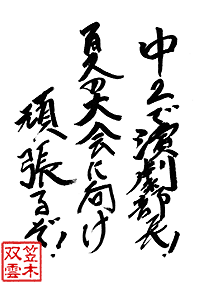 中2で演劇部長!
夏の大会に向け
頑張るぞ!
笠木
双雲